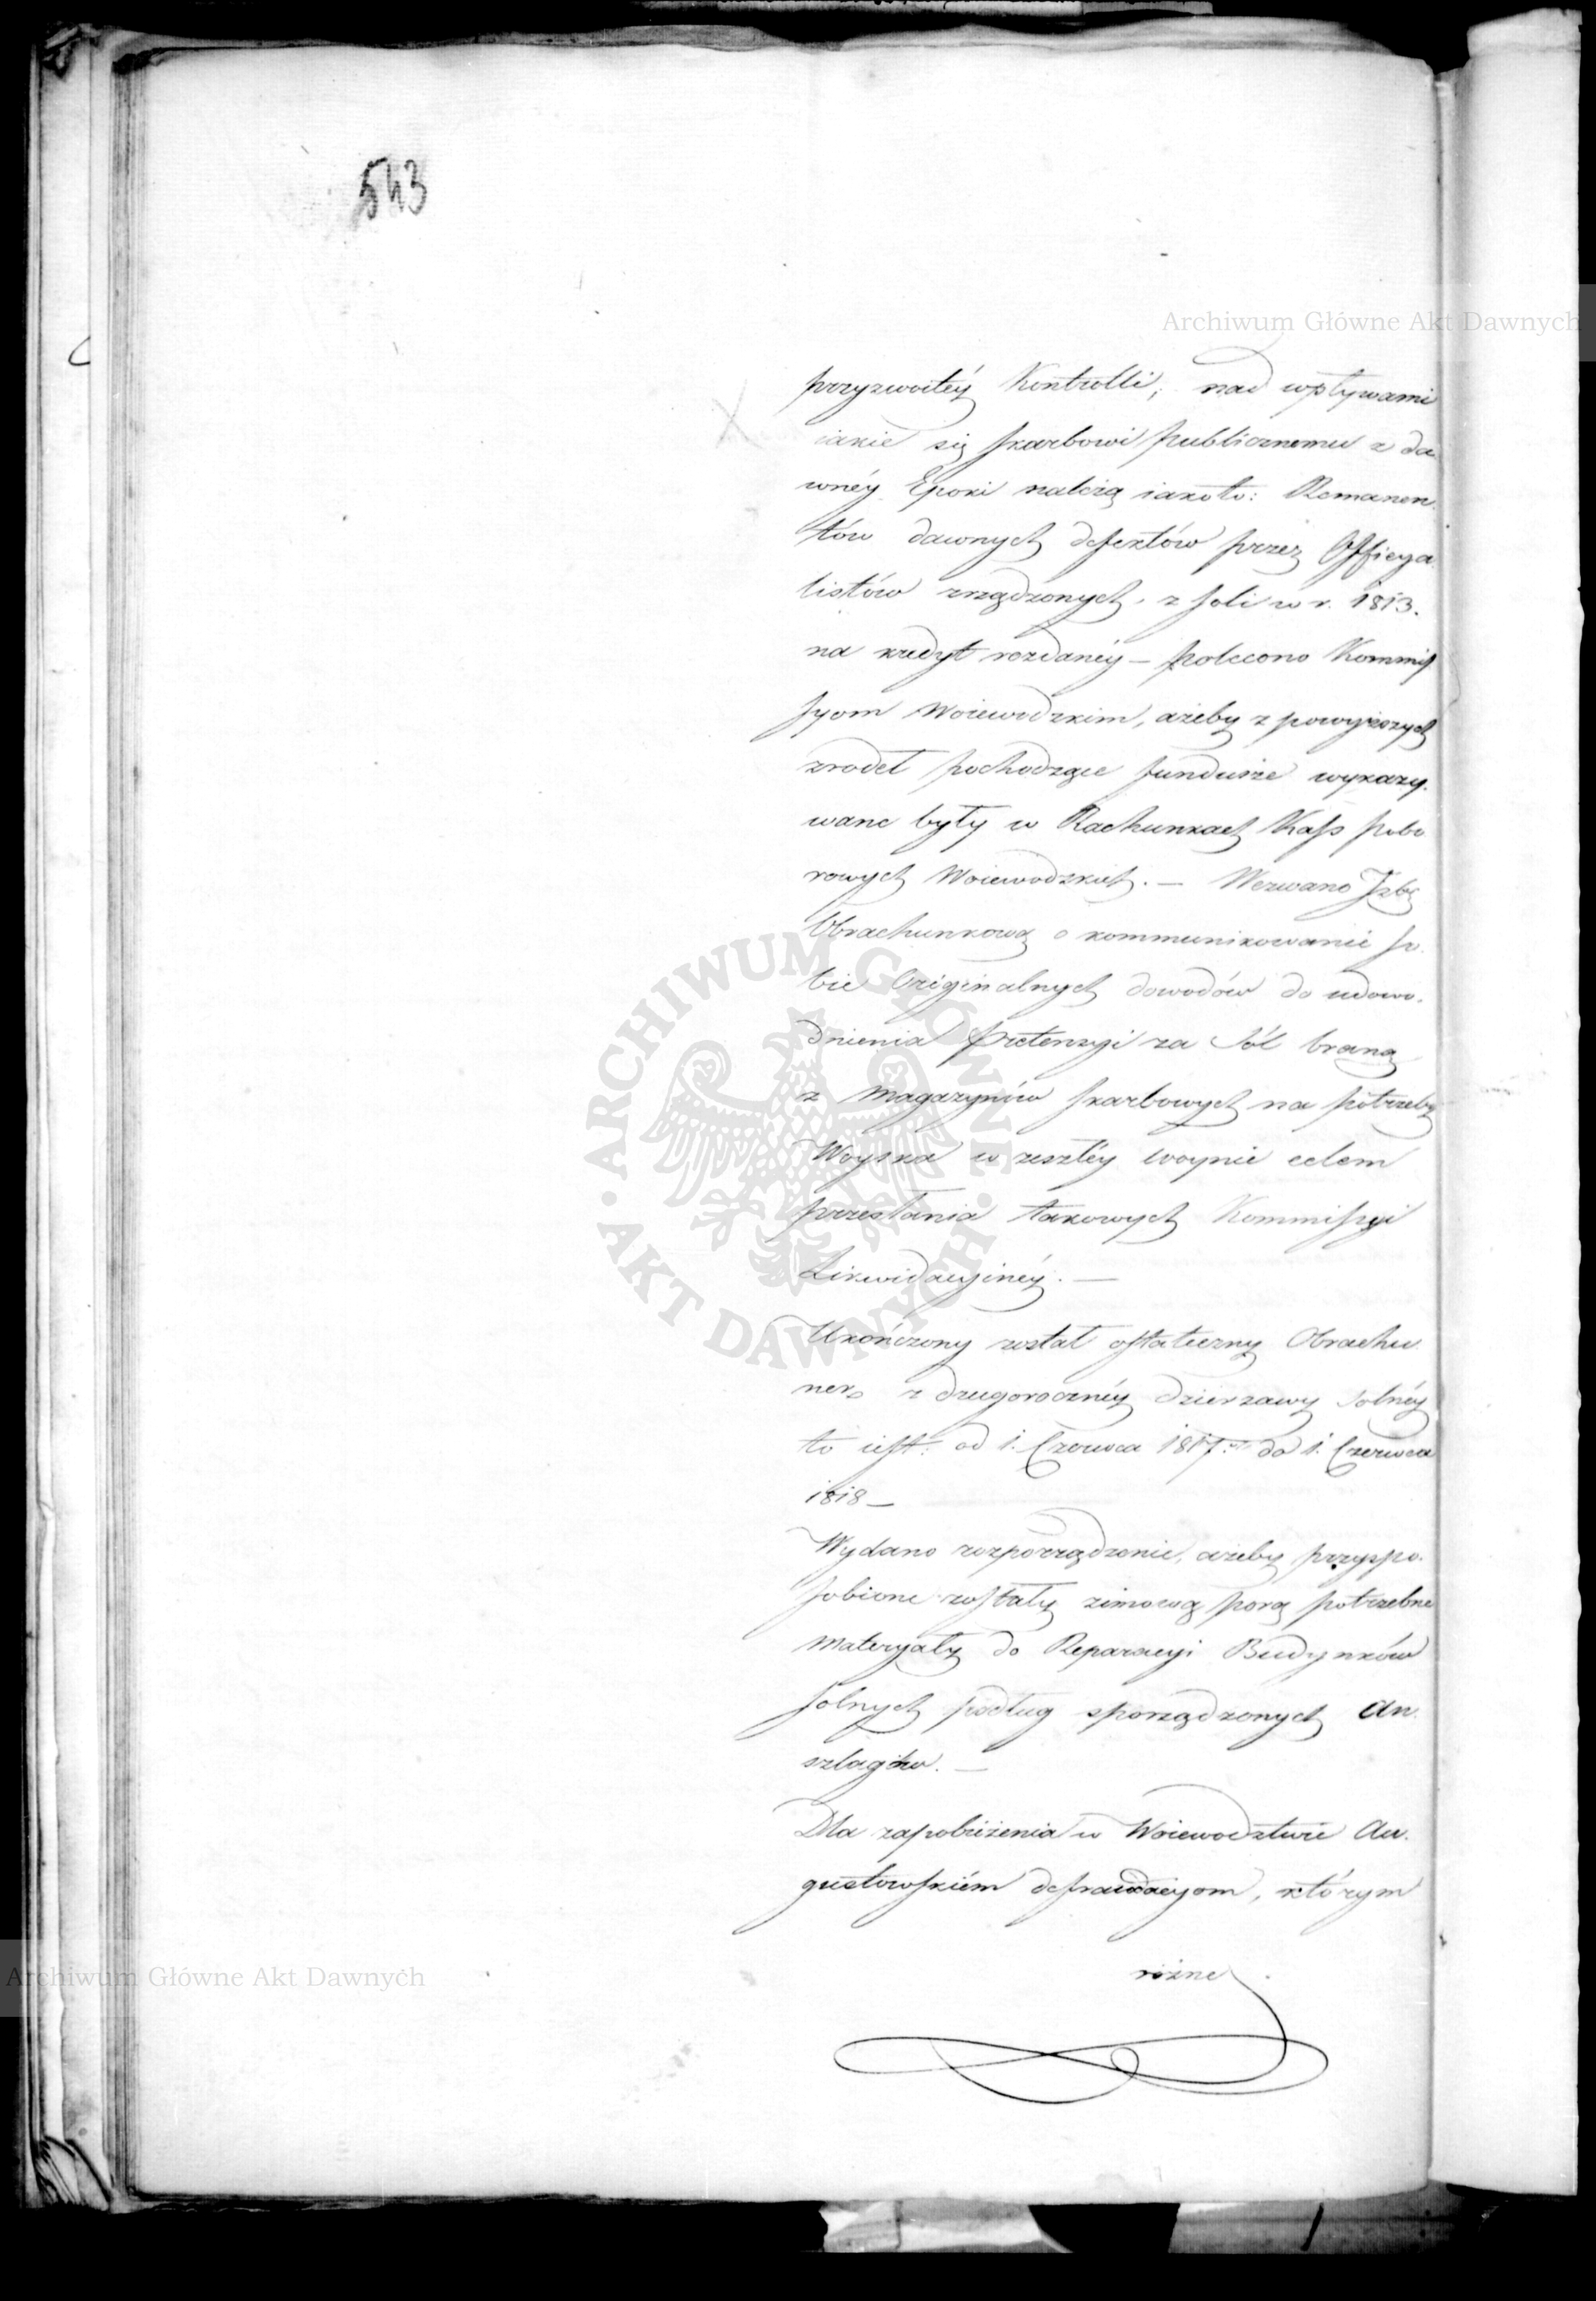 543
Archiwum Główne Akt Dawnych
przyzwoitéy Kontrolli, nad wpływami
iakie się skarbowi publicznemu z da
wnéy Epoki należą iakoto: Remanen
tów dawnych defektów przez Officya
listów zrządzonych, z soli w r. 1813.
na kredyt rozdanéy – polecono Kommis
syom Woiewodzkim, ażeby z powyższych
zrodeł pochodzące fundusze wykazy.
wane były w Rachunkach Kass pobo
rowych Woiewodzkich. – Wezwano Izbę
Obrachunkową o kommunikowanie so.
bie Originalnych dowodów do udowo.
dnienia pretensyi za Sól braną
z Magazynów skarbowych na potrzeby
Woyska w zeszłéy woynie celem
przesłania takowych Kommissyi
Likwidacyinéy. –
Ukończony został ostateczny Obrachu
nek z drugoroczney dzierzawy Solnéy
to iest: od 1. Czerwca 1817. do 1. Czerwca
1818 –
Wydano rozporządzenie, ażeby przyspo.
sobione zostały zimową porą potrzebne
materyały do Reparacyi Budynków
solnych podług sporządzonych An.
szlagów. –
Dla zapobieżenia w Woiewodztwie Au.
gustowskiém defraudacyom, którym
rożne
Archiwum Główne Akt Dawnych
ARCHIWUM GŁÓWNE · AKT DAWNYCH ·